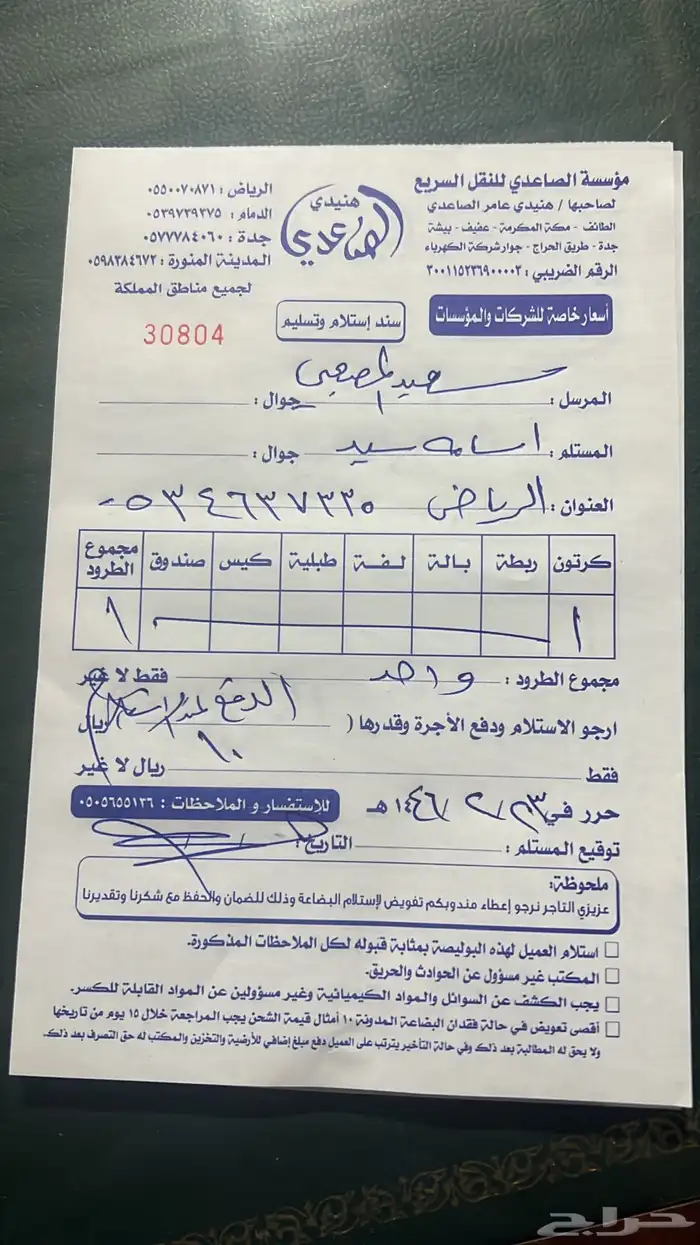 مؤسسة الصاعدي للنقل السريع
لصاحبها / هنيدي عامر الصاعدي
الطائف - مكة المكرمة - عفيف - بيشة
جدة - طريق الحراج - جوار شركة الكهرباء
الرقم الضريبي: ٣٠٠١١٥٢٣٦٩٠٠٠٠٣
هنيدي
الصاعدي
الرياض : ٠٥٥٠٠٧٠٨٧١
الدمام : ٠٥٣٩٧٣٩٣٧٥
جدة : ٠٥٧٧٧٨٤٠٦٠
المدينة المنورة : ٠٥٩٨٣٨٤٦٧٢
لجميع مناطق المملكة
أسعار خاصة للشركات والمؤسسات
سند إستلام وتسليم
30804
المرسل : جوال :
المستلم : اسامه سيد جوال :
العنوان : الرياض ٠٥٣٤٦٣٧٣٣٥
كرتون ربطة بالة لفة طبلية كيس صندوق مجموع الطرود
١ ١
مجموع الطرود : واحد فقط لا غير
ارجو الاستلام ودفع الأجرة وقدرها ( الدفع ريال
فقط ريال لا غير
حرر في ٢٣ / ٢ / ١٤٤٦ هـ
للإستفسار و الملاحظات : ٠٥٠٥٦٥٥١٣٦
توقيع المستلم : التاريخ :
ملحوظة:
عزيزي التاجر نرجو إعطاء مندوبكم تفويض لإستلام البضاعة وذلك للضمان والحفظ مع شكرنا وتقديرنا
استلام العميل لهذه البوليصة بمثابة قبوله لكل الملاحظات المذكورة.
المكتب غير مسؤول عن الحوادث والحريق.
يجب الكشف عن السوائل والمواد الكيميائية وغير مسؤولين عن المواد القابلة للكسر.
أقصى تعويض في حالة فقدان البضاعة المدونة ١٠ أمثال قيمة الشحن يجب المراجعة خلال ١٥ يوم من تاريخها
ولا يحق له المطالبة بعد ذلك وفي حالة التأخير يترتب على العميل دفع مبلغ إضافي للأرضية والتخزين والمكتب له حق التصرف بعد ذلك.
حراج